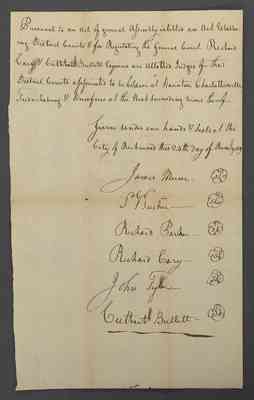 Pursuant to an Act of general Assembly intitled an Act Establish
ing District Courts & for Regulating the general Court Richard
Cary & Cuthbert Bullitt Esquires are allotted Judges of the
District Courts appointed to be holden at Staunton Charlottesville
Fredericksburg & Dumfries at the Next succeeding Term thereof.
Given under our hands & Seals at the
City of Richmond this 24th day of
James Mercer
Richard Parker
Richard Cary
John Tyler
Cuthbert Bullitt